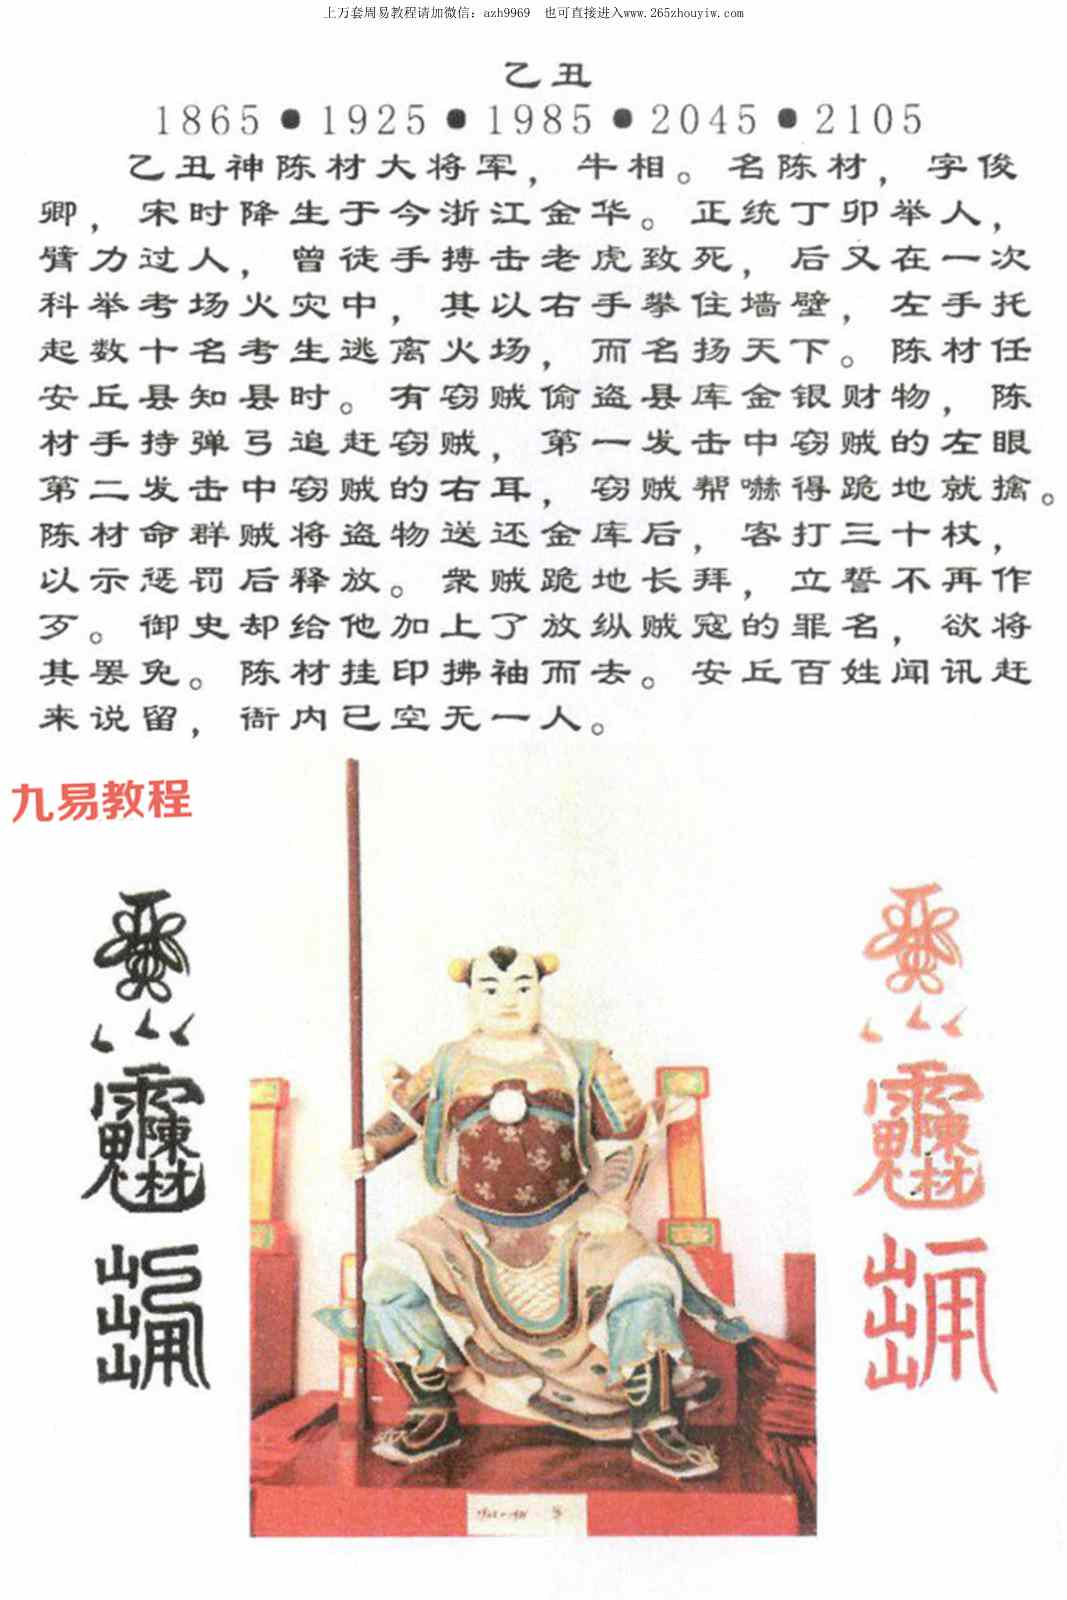 上万套周易教程请加微信：azh9969 也可直接进入www.265zhouyiw.com
乙丑
1865●1925●1985●2045●2105
乙丑神陈材大将军，牛相。名陈材，字俊
卿，宋时降生于今浙江金华。正统丁卯举人，
臂力过人，曾徒手搏击老虎致死，后又在一次
科举考场火灾中，其以右手攀住墙壁，左手托
起数十名考生逃离火场，而名扬天下。陈材任
安丘县知县时。有窃贼偷盗县库金银财物，陈
材手持弹弓追赶窃贼，第一发击中窃贼的左眼
第二发击中窃贼的右耳，窃贼帮嚇得跪地就擒。
陈材命群贼将盗物送还金库后，客打三十杖，
以示惩罚后释放。衆贼跪地长拜，立誓不再作
歹。御史却给他加上了放纵贼寇的罪名，欲将
其罢免。陈材挂印拂袖而去。安丘百姓闻讯赶
来说留，衙内已空无一人。
九易教程